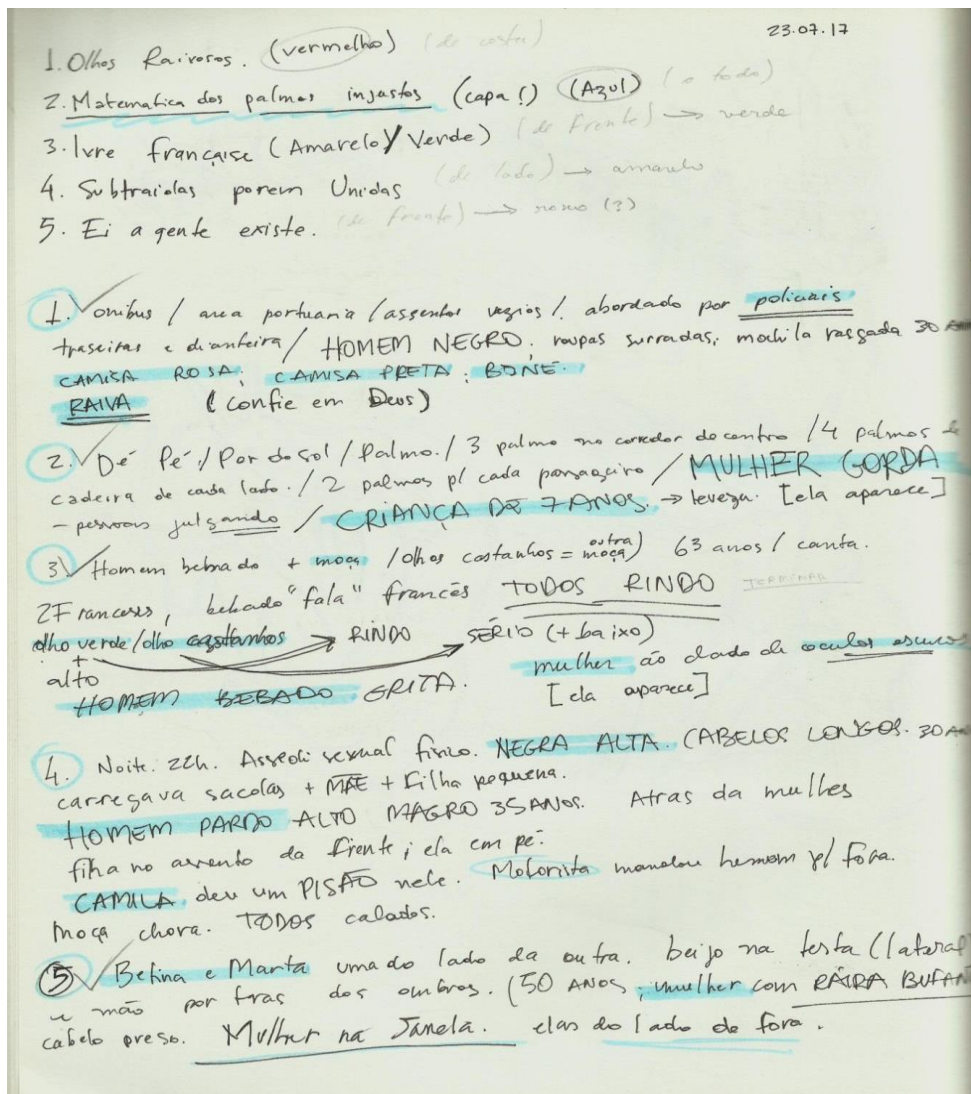 23.07.17
1. Olhos Raivosos. (vermelho) (de costa)
2. Matematica dos palmos injustos (capa!) (Azul) (o todo)
3. Ivre française (Amarelo/Verde) (de frente) → verde
4. Subtraidas porem Unidas (de lado) → amarelo
5. Ei a gente existe. (de frente) → roxo (?)
1. onibus / area portuaria / assentos vazios /. abordado por policiais
traseiras e dianteira / HOMEM NEGRO; roupas surradas, mochila rasgada 30
CAMISA ROSA; CAMISA PRETA; BONÉ.
RAIVA (confie em Deus)
2. De Pé / Por do sol / Palmo. / 3 palmo no corredor do centro / 4 palmos
cadeira de cada lado. / 2 palmos p/ cada passageiro / MULHER GORDA
- pessoas julgando / CRIANÇA DE 7 ANOS. → leveza. [ela aparece]
3 Homem bebado + moça / olhos castanhos = outra moça) 63 anos / canta.
2 Franceses, bebado "fala" francês TODOS RINDO TERMINAR
olho verde / olho castanhos → RINDO SÉRIO (+ baixo)
+
alto mulher ao lado de oculos escuros
HOMEM BEBADO GRITA. [ela aparece]
4. Noite. 22h. Assedi sexual fisico. NEGRA ALTA. CABELOS LONGOS. 30
carregava sacolas + MÃE + Filha pequena.
HOMEM PARDO ALTO MAGRO 35 ANOS. Atras da mulhes
filha no assento da frente; ela em pé.
CAMILA deu um PISÃO nele. Motorista mandou homem p/ fora.
moça chora. TODOS calados.
5 Betina e Marta uma do lado da outra. beijo na testa (lateral)
e mão por tras dos ombros. (50 ANOS; mulher com
cabelo preso. Mulher na Janela. elas do lado de fora.